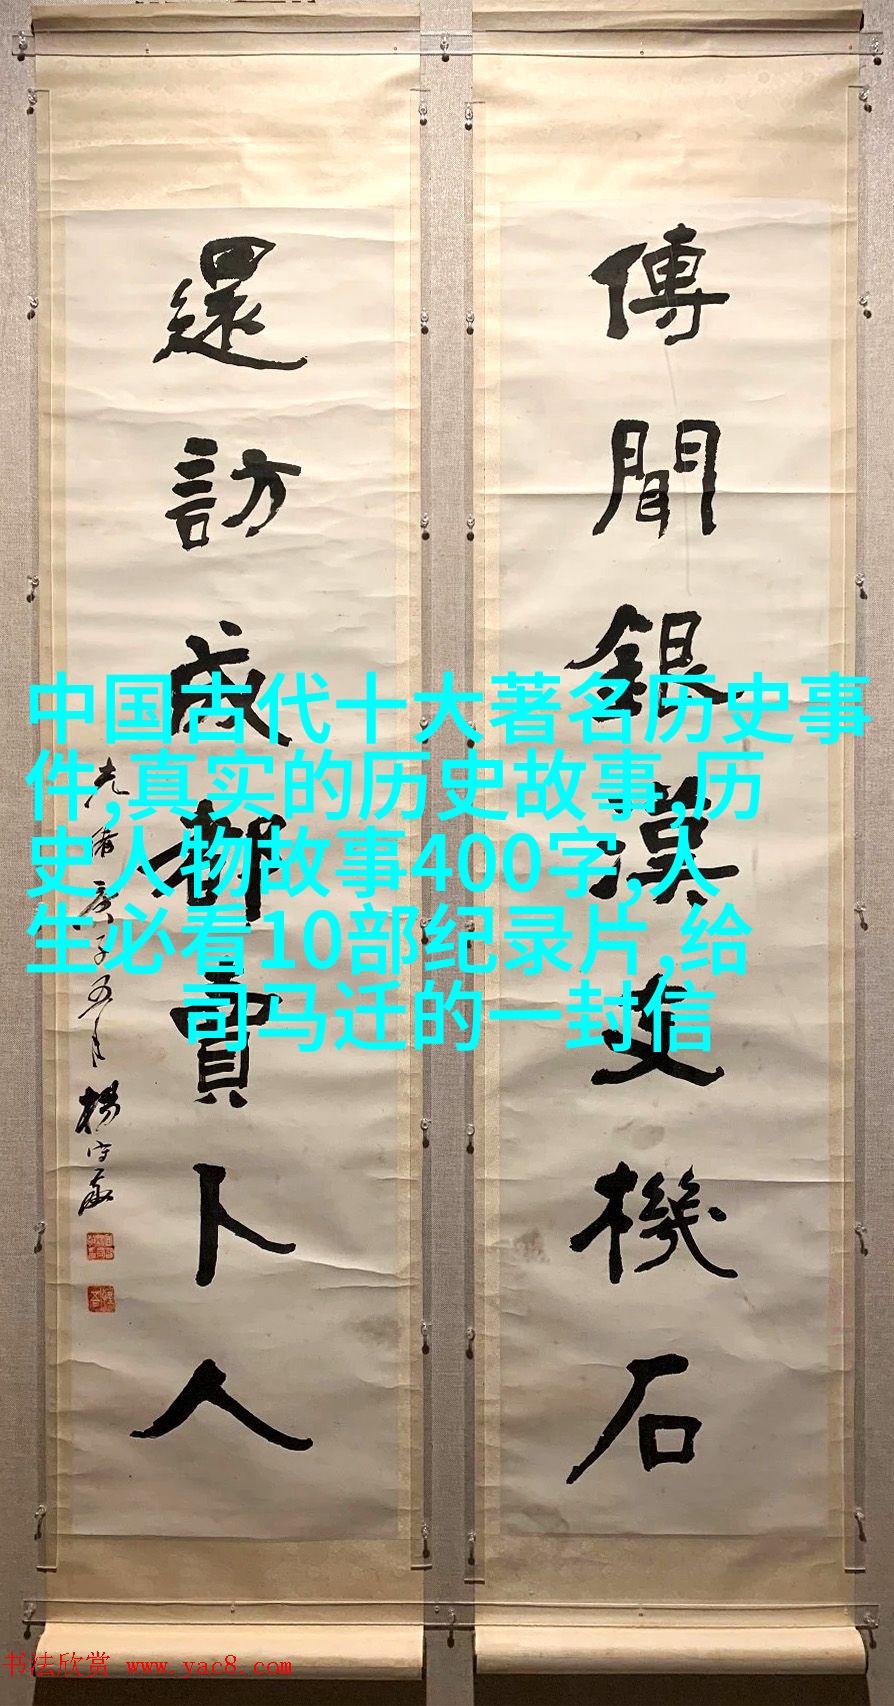 傳聞銀漢支機石
還訪成都賣卜人
光緒庚子五月楊守敬
中国古代十大著名历史事
件,真实的历史故事,历
史人物故事400字,人
生必看10部纪录片,给
司马迁的一封信
书法欣赏 www.yac8.com